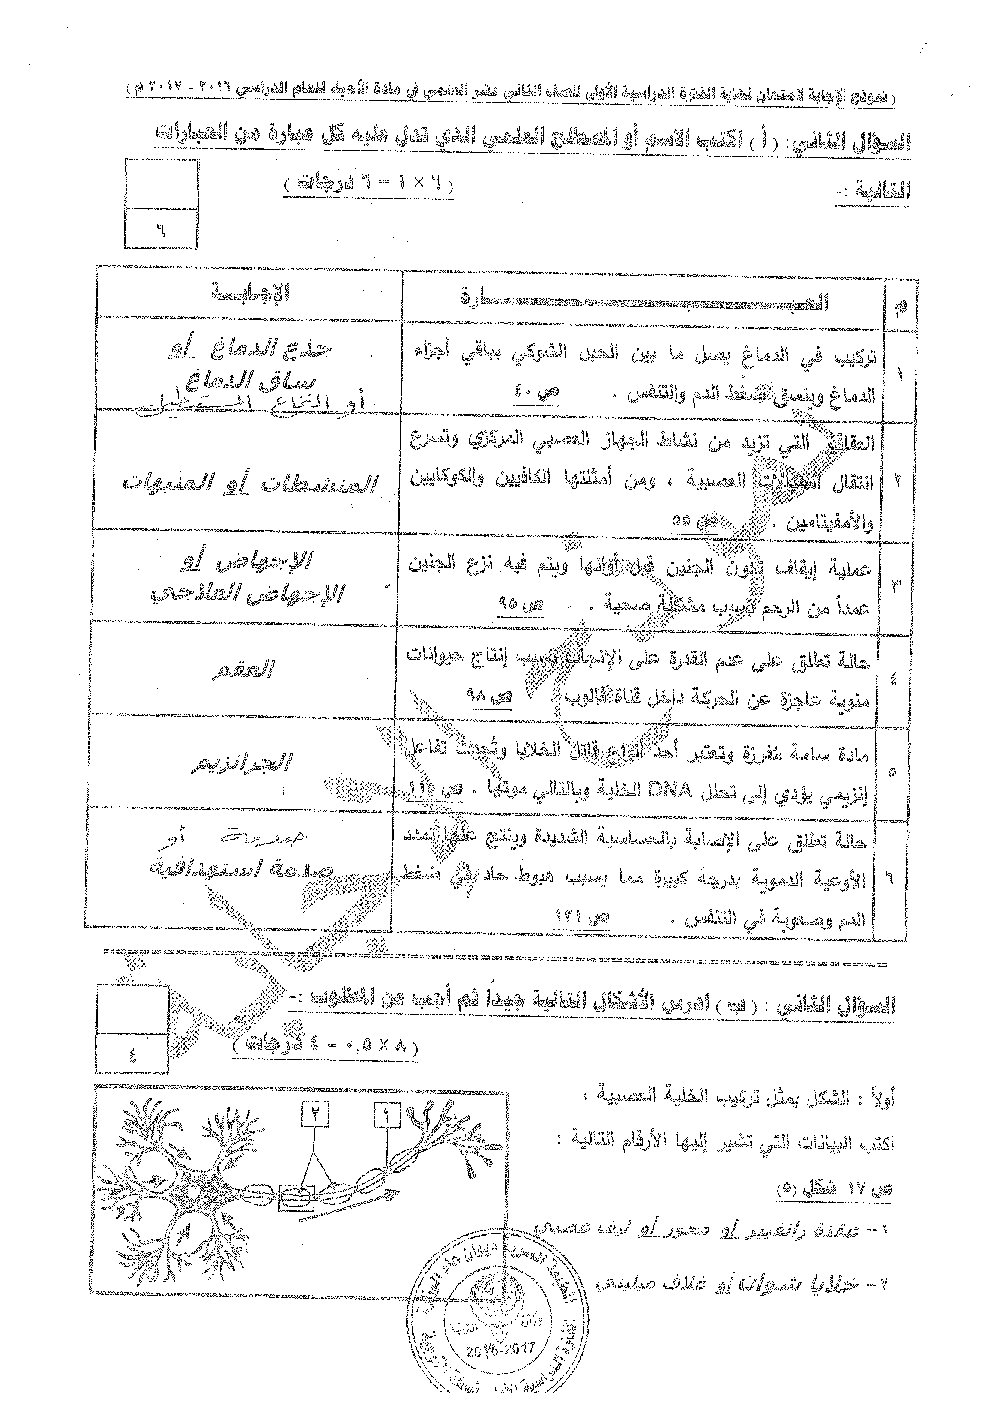 ( نموذج الإجابة لامتحان نهاية الفترة الدراسية الأولى للصف الثاني عشر العلمي في مادة الأحياء للعام الدراسي ٢٠١٦ - ٢٠١٧ م )
السؤال الثاني: ( أ ) اكتب الاسم أو المصطلح العلمي الذي تدل عليه كل عبارة من العبارات
التالية :-
( ٦ × ١ = ٦ درجات )
٦
م العبـــارة الإجابة
١ تركيب في الدماغ يصل ما بين الحبل الشوكي بباقي أجزاء
الدماغ وينسق ضغط الدم والتنفس . ص ٤٠
جذع الدماغ أو
ساق الدماغ
أو النخاع المستطيل
٢ العقاقير التي تزيد من نشاط الجهاز العصبي المركزي وتسرع
انتقال السيالات العصبية ، ومن أمثلتها الكافيين والكوكايين
والأمفيتامين . ص ٥٥
المنشطات أو المنبهات
٣ عملية إيقاف تكون الجنين قبل أوانها ويتم فيه نزع الجنين
عمداً من الرحم بسبب مشكلة صحية . ص ٩٥
الإجهاض أو
الإجهاض العلاجي
٤ حالة تطلق على عدم القدرة على الإنجاب بسبب إنتاج حيوانات
منوية عاجزة عن الحركة داخل قناة فالوب ص ٩٨
العقم
٥ مادة سامة مفرزة وتعتبر أحد أنواع قاتل الخلايا وتُحدث تفاعل
إنزيمي يؤدي إلى تحلل DNA الخلية وبالتالي موتها .
الجرانزيم
٦ حالة تطلق على الإصابة بالحساسية الشديدة وينتج عنها تمدد
الأوعية الدموية بدرجة كبيرة مما يسبب هبوط حاد في ضغط
الدم وصعوبة في التنفس . ص ١٢١
صدمة أو
صدمة استهدافية
السؤال الثاني : ( ب ) ادرس الأشكال التالية جيداً ثم أجب عن المطلوب :-
( ٨ × ٠,٥ = ٤ درجات )
٤
أولاً : الشكل يمثل تركيب الخلية العصبية ،
اكتب البيانات التي تشير إليها الأرقام التالية :
ص ١٧ شكل (٥)
١- عقدة رانفيير أو محور أو ليف عصبي
٢- خلايا شفوان أو غلاف ميليني
٢
١
2016-2017